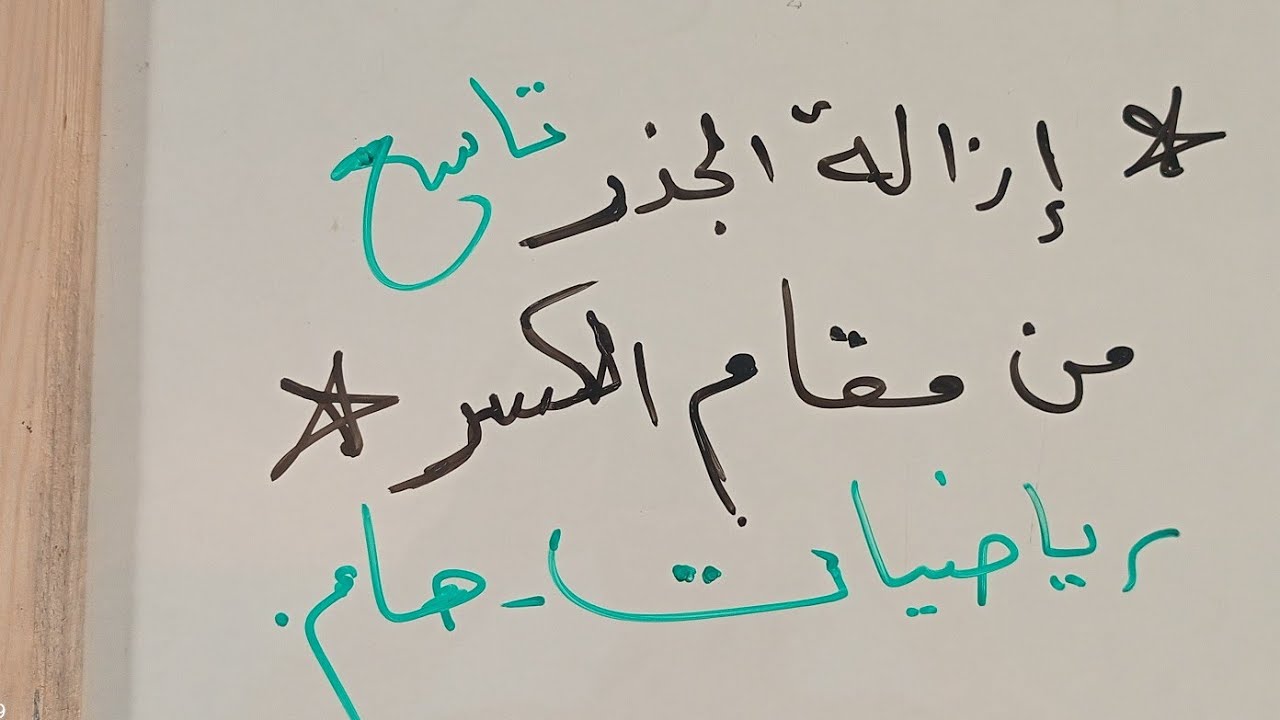 * إزالة الجذر تاسع
من مقام الكسر *
رياضيات - هام.
9